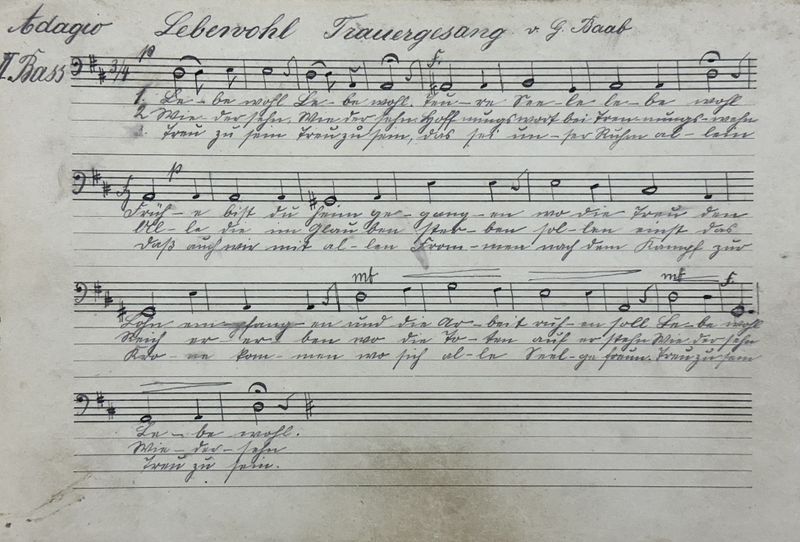 Adagio Lebewohl Trauergesang v. G. Baab
II. Bass
3/4 p f.
1. Le - be wohl Le - be wohl. teu - re See - le le - be wohl
2 Wie - der sehn. Wie der sehn. Hoff nungswort bei Tren - nungs - wehn
3. Treu zu sein Treu zu sein, das sei un - ser Ruhm al - lein
f p
Früh - e bist du heim ge - gang - en wo die Treu den
Al - le die im Glau ben ster - ben sol - len einst das
Daß auch wir mit al - len From - men nach dem Kampf zur
mf mf f.
Lohn em - pfang - en und die Ar - beit ruh - en soll Le - be wohl
Reich er - er - ben wo die To - ten auf er stehn Wie der sehn
Kro - ne kom - men wo sich al - le Seel - ge freun. Treu zu sein
Le - be wohl.
Wie - der - sehn
Treu zu sein.